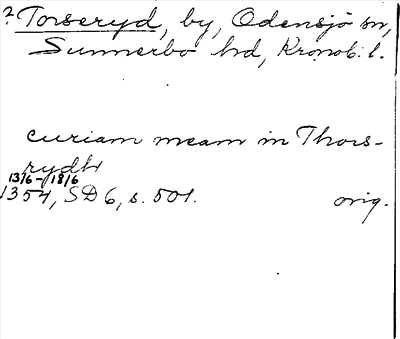 ? Torseryd, by, Odensjö sn,
Sunnerbo hd, Kronob. l.
curiam meam in Thors-
rydh
13/6–18/6
1354, SD 6, s. 501. orig.